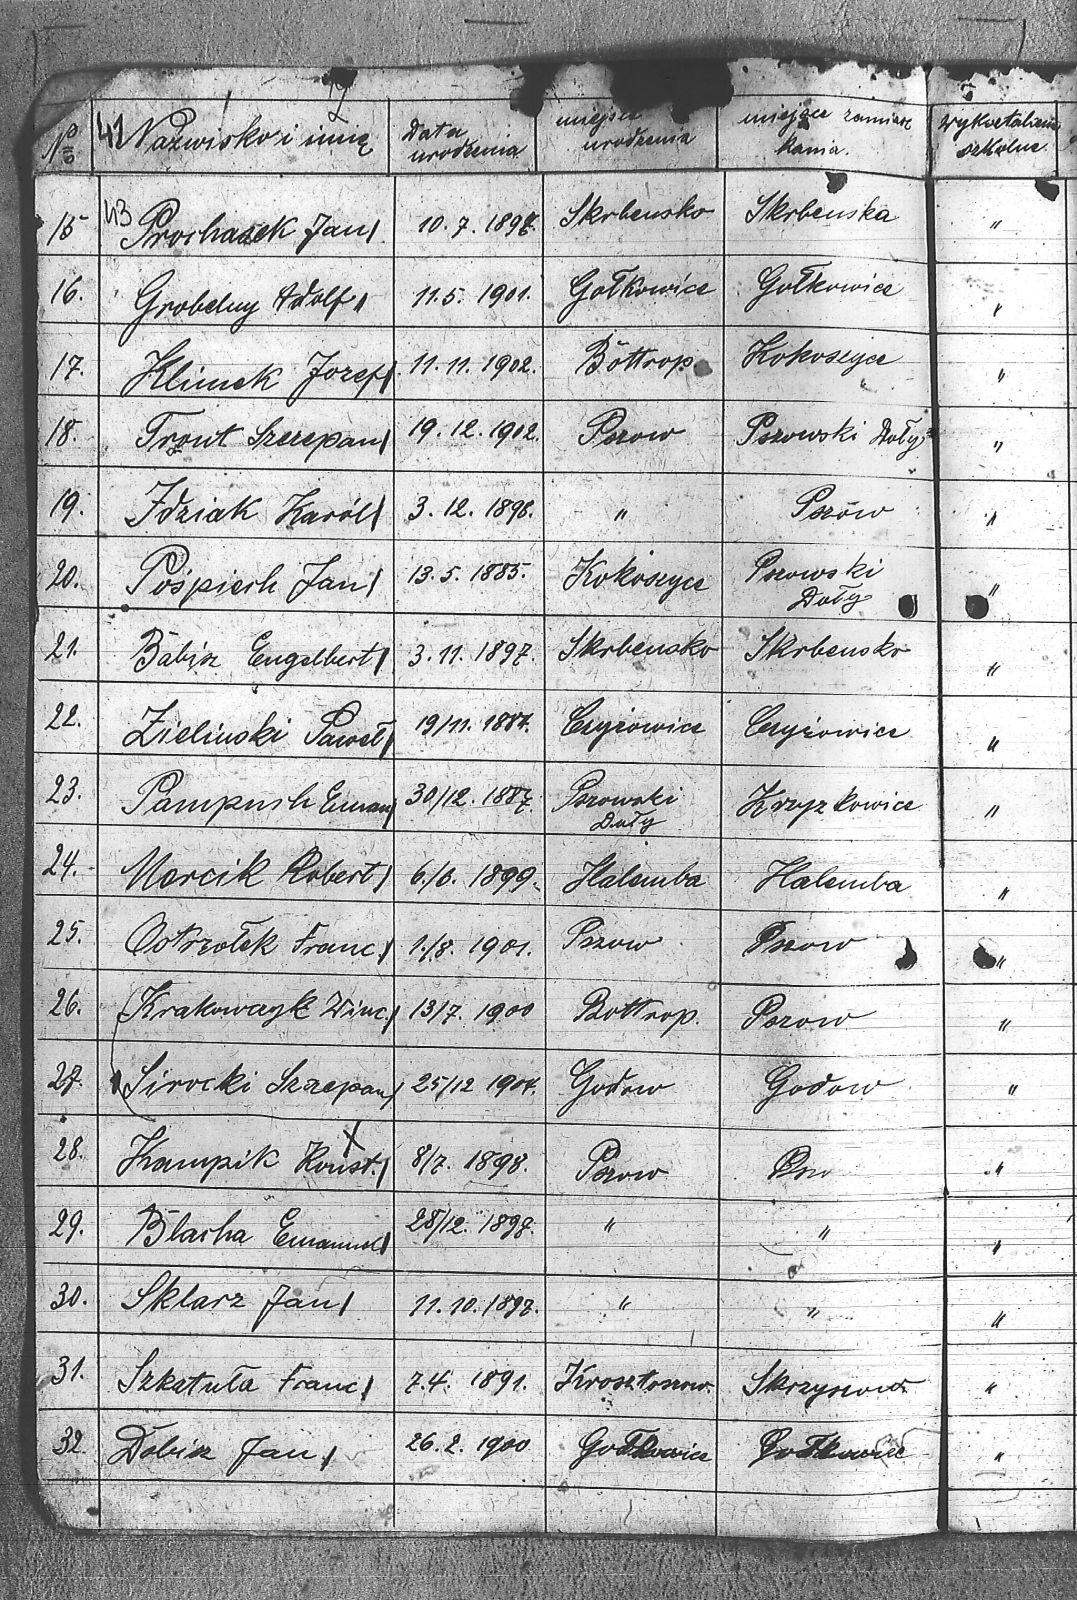 No 42 Nazwisko i imię Data urodzenia miejsce urodzenia miejsce zamiesz kania. wykształcenie szkolne
43
15 Prochasek Jan 10. 7. 1897. Skrbensko Skrbenska "
16. Grobelny Adolf 11. 5. 1901. Gołkowice Gołkowice "
17. Klimek Jozef 11. 11. 1902. Bottrop Kokoszyce "
18. Tront Szczepan 19. 12. 1902. Pszow Pszowski Doły "
19. Idziak Karól 3. 12. 1898. " Pszów "
20. Pośpiech Jan 13. 5. 1885. Kokoszyce Pszowski Doły "
21. Babisz Engelbert 3. 11. 1897. Skrbensko Skrbensko "
22. Zielinski Paweł 19/11. 1887. Czyżowice Czyżowice "
23. Pampuch Eman 30/12. 1887. Pszowski Doły Krzyżkowice "
24. Marcik Robert 6./6. 1899. Halemba Halemba "
25. Ostrzołek Franc 1./8. 1901. Pszow Pszow "
26. Krakowczyk Winc 13/7. 1900 Bottrop. Pszow "
27. Sirocki Szczepan 25/12 1904. Godow Godow "
28. Kampik Konst. 8/7. 1898. Pszow Pszo "
29. Blacha Emanuel 28/12. 1897. " " "
30. Sklarz Jan 11. 10. 1897. " " "
31. Szkatuła Franc 7. 4. 1891. Krosztoszow. Skrzyszow "
32 Dobisz Jan 26. 2. 1900 Gołkowice Gołkowice "